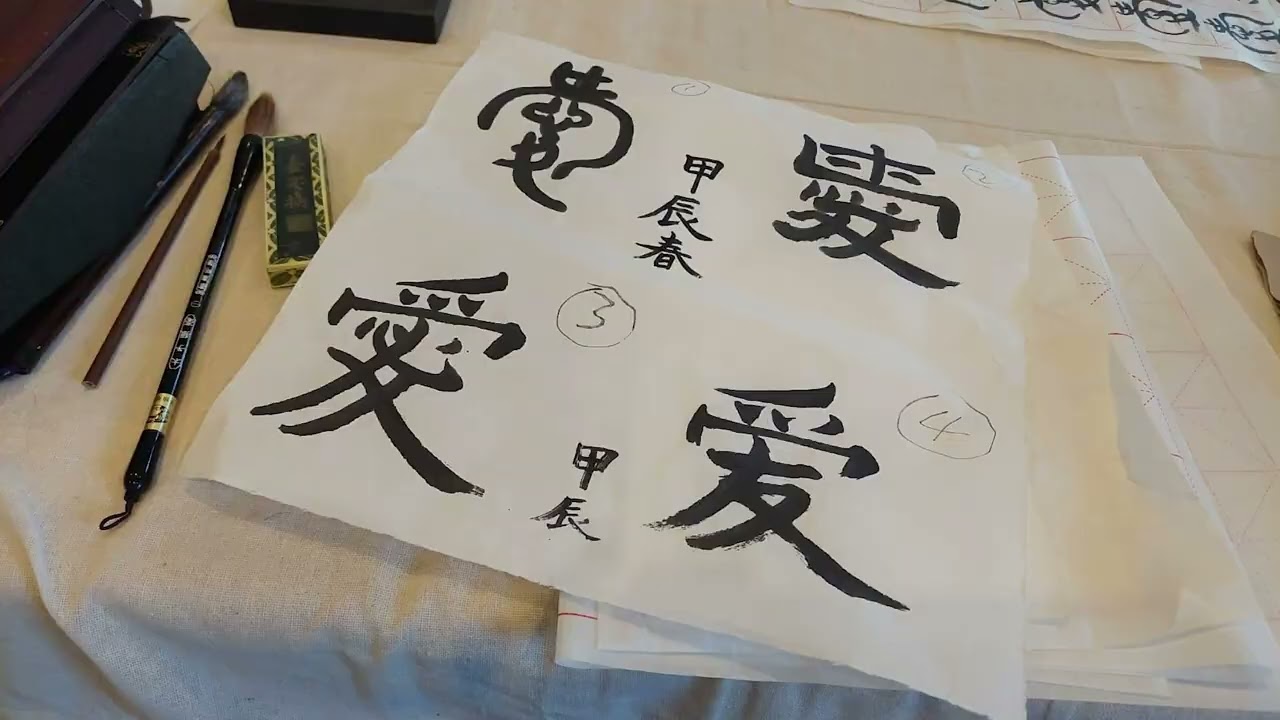 ①
愛
甲辰春
②
愛
③
愛
甲辰
④
爱